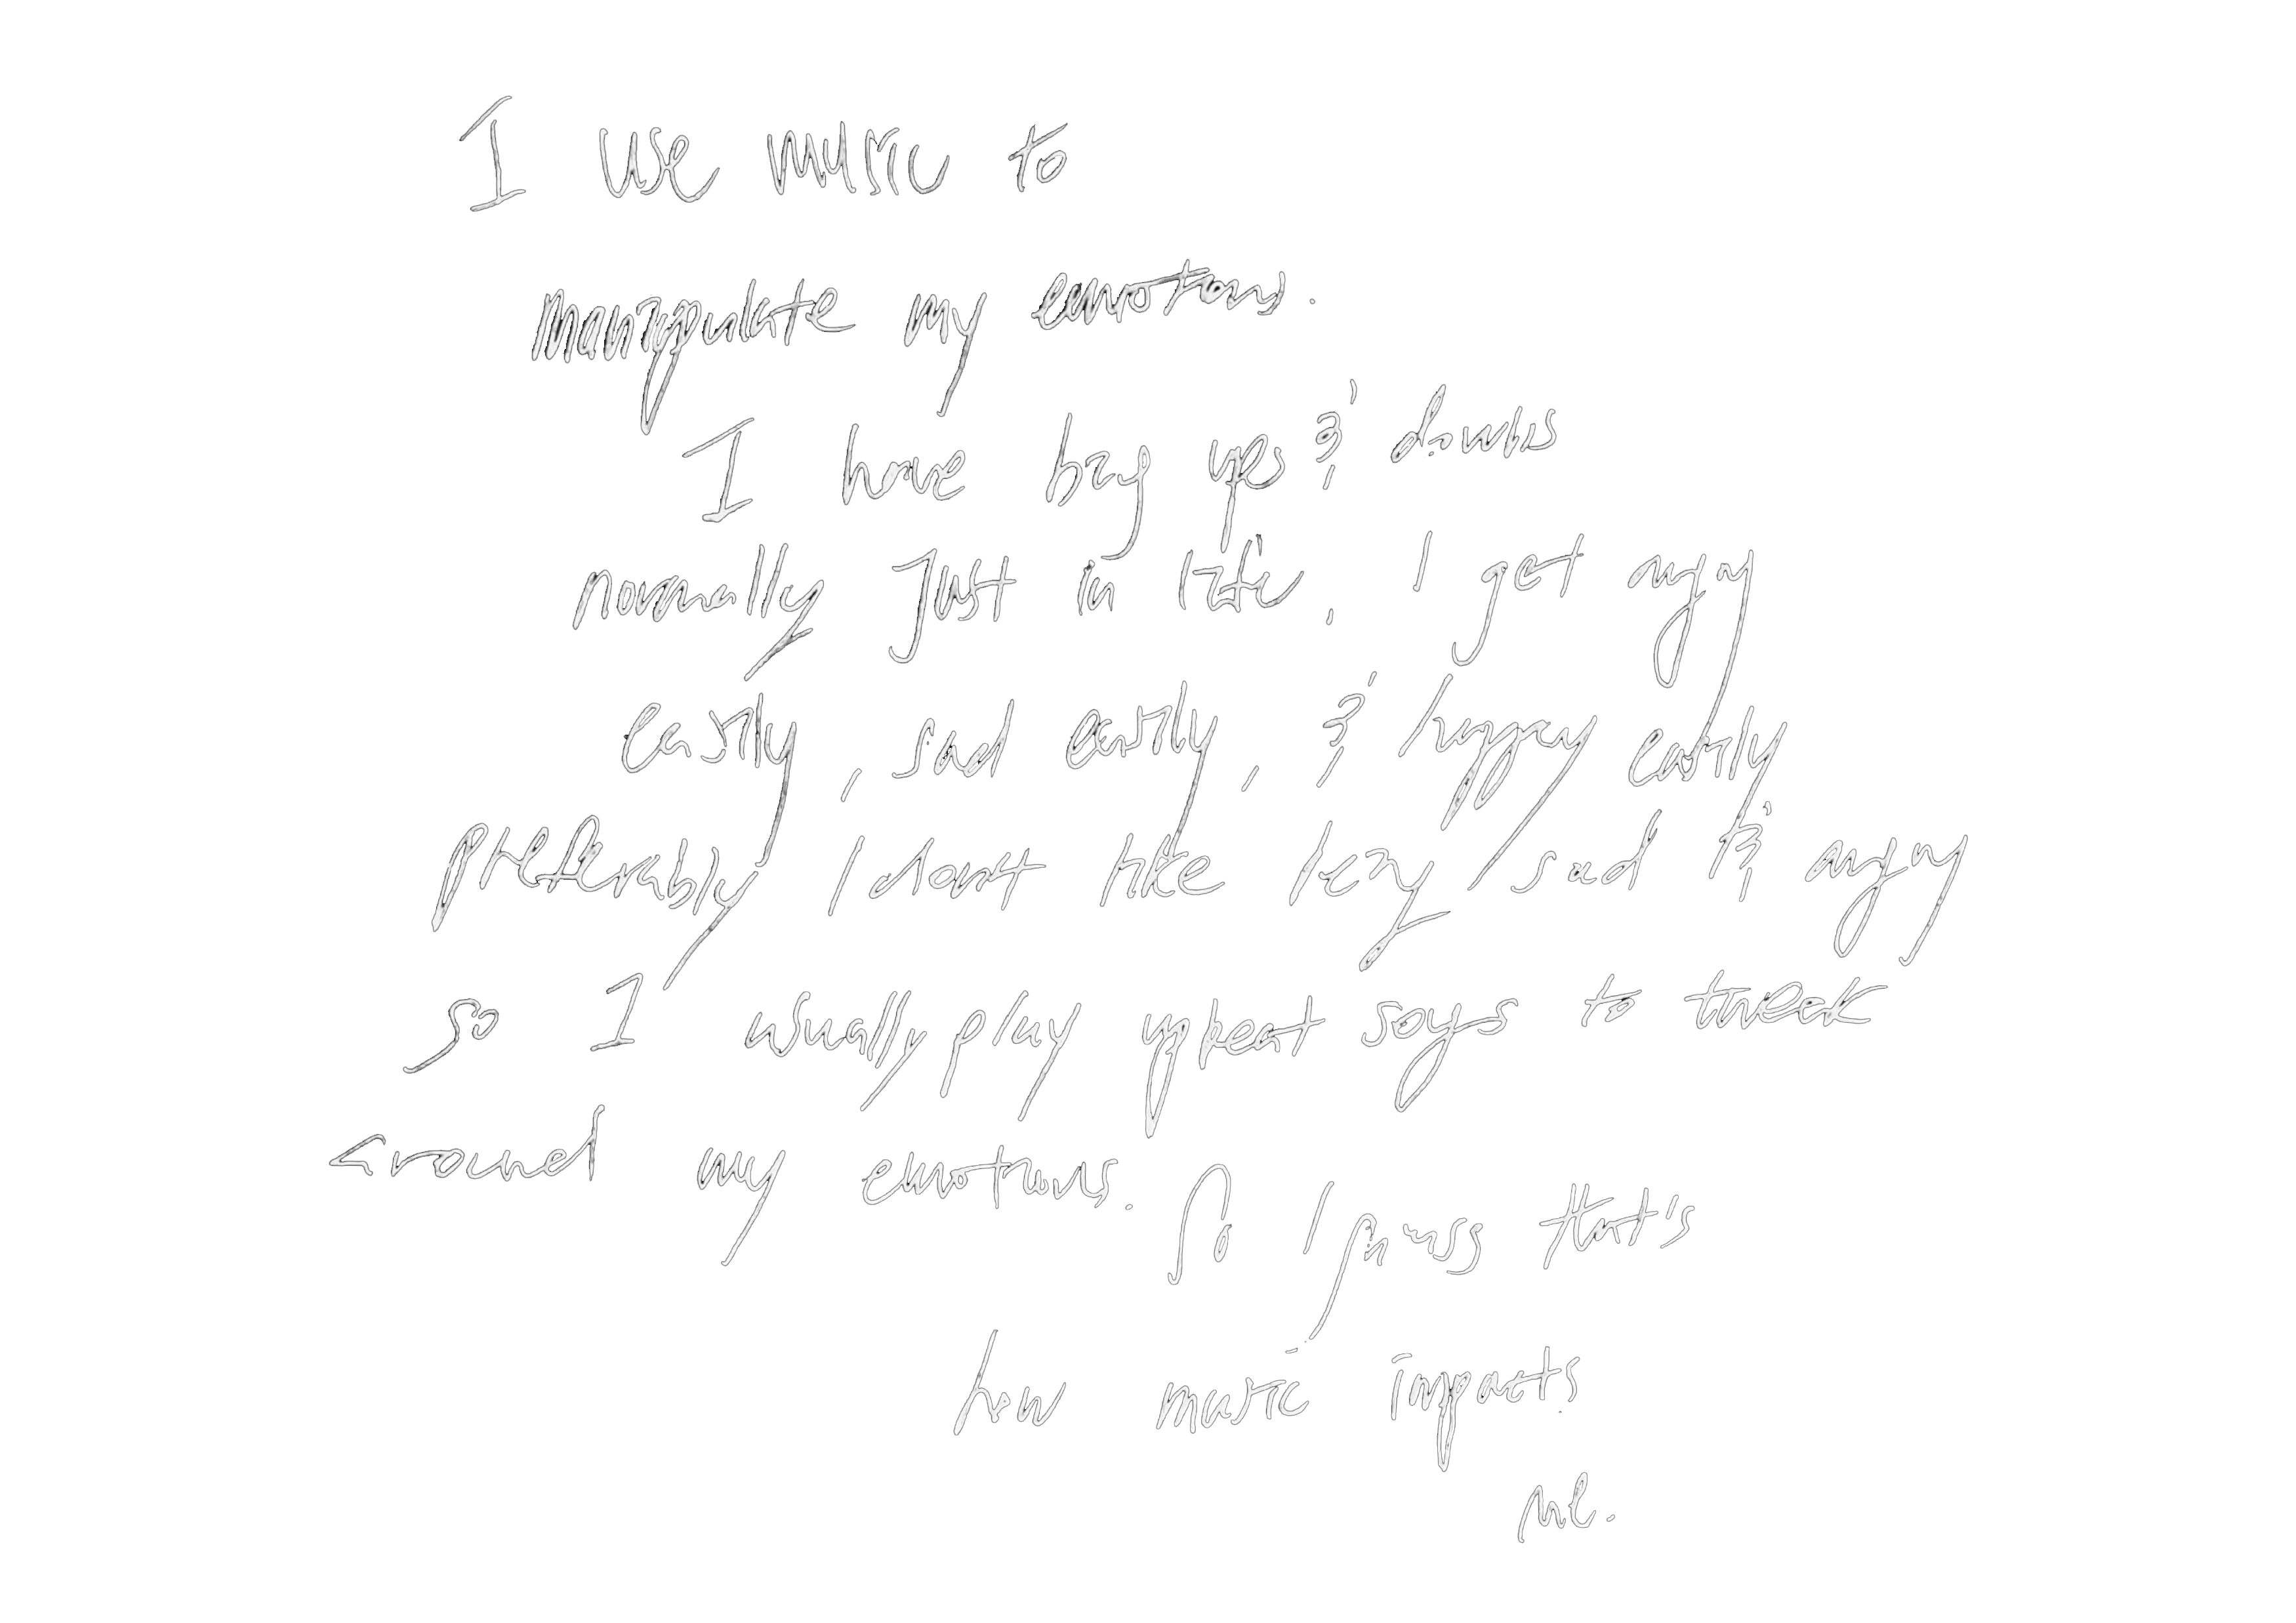 I use music to
manipulate my emotions.
I have big ups & downs
normally just in life. I get angry
easily, sad easily, & happy easily
preferably I don't like being sad & angry
so I usually play upbeat songs to tweek
around my emotions. So I guess that's
how music impacts
me.